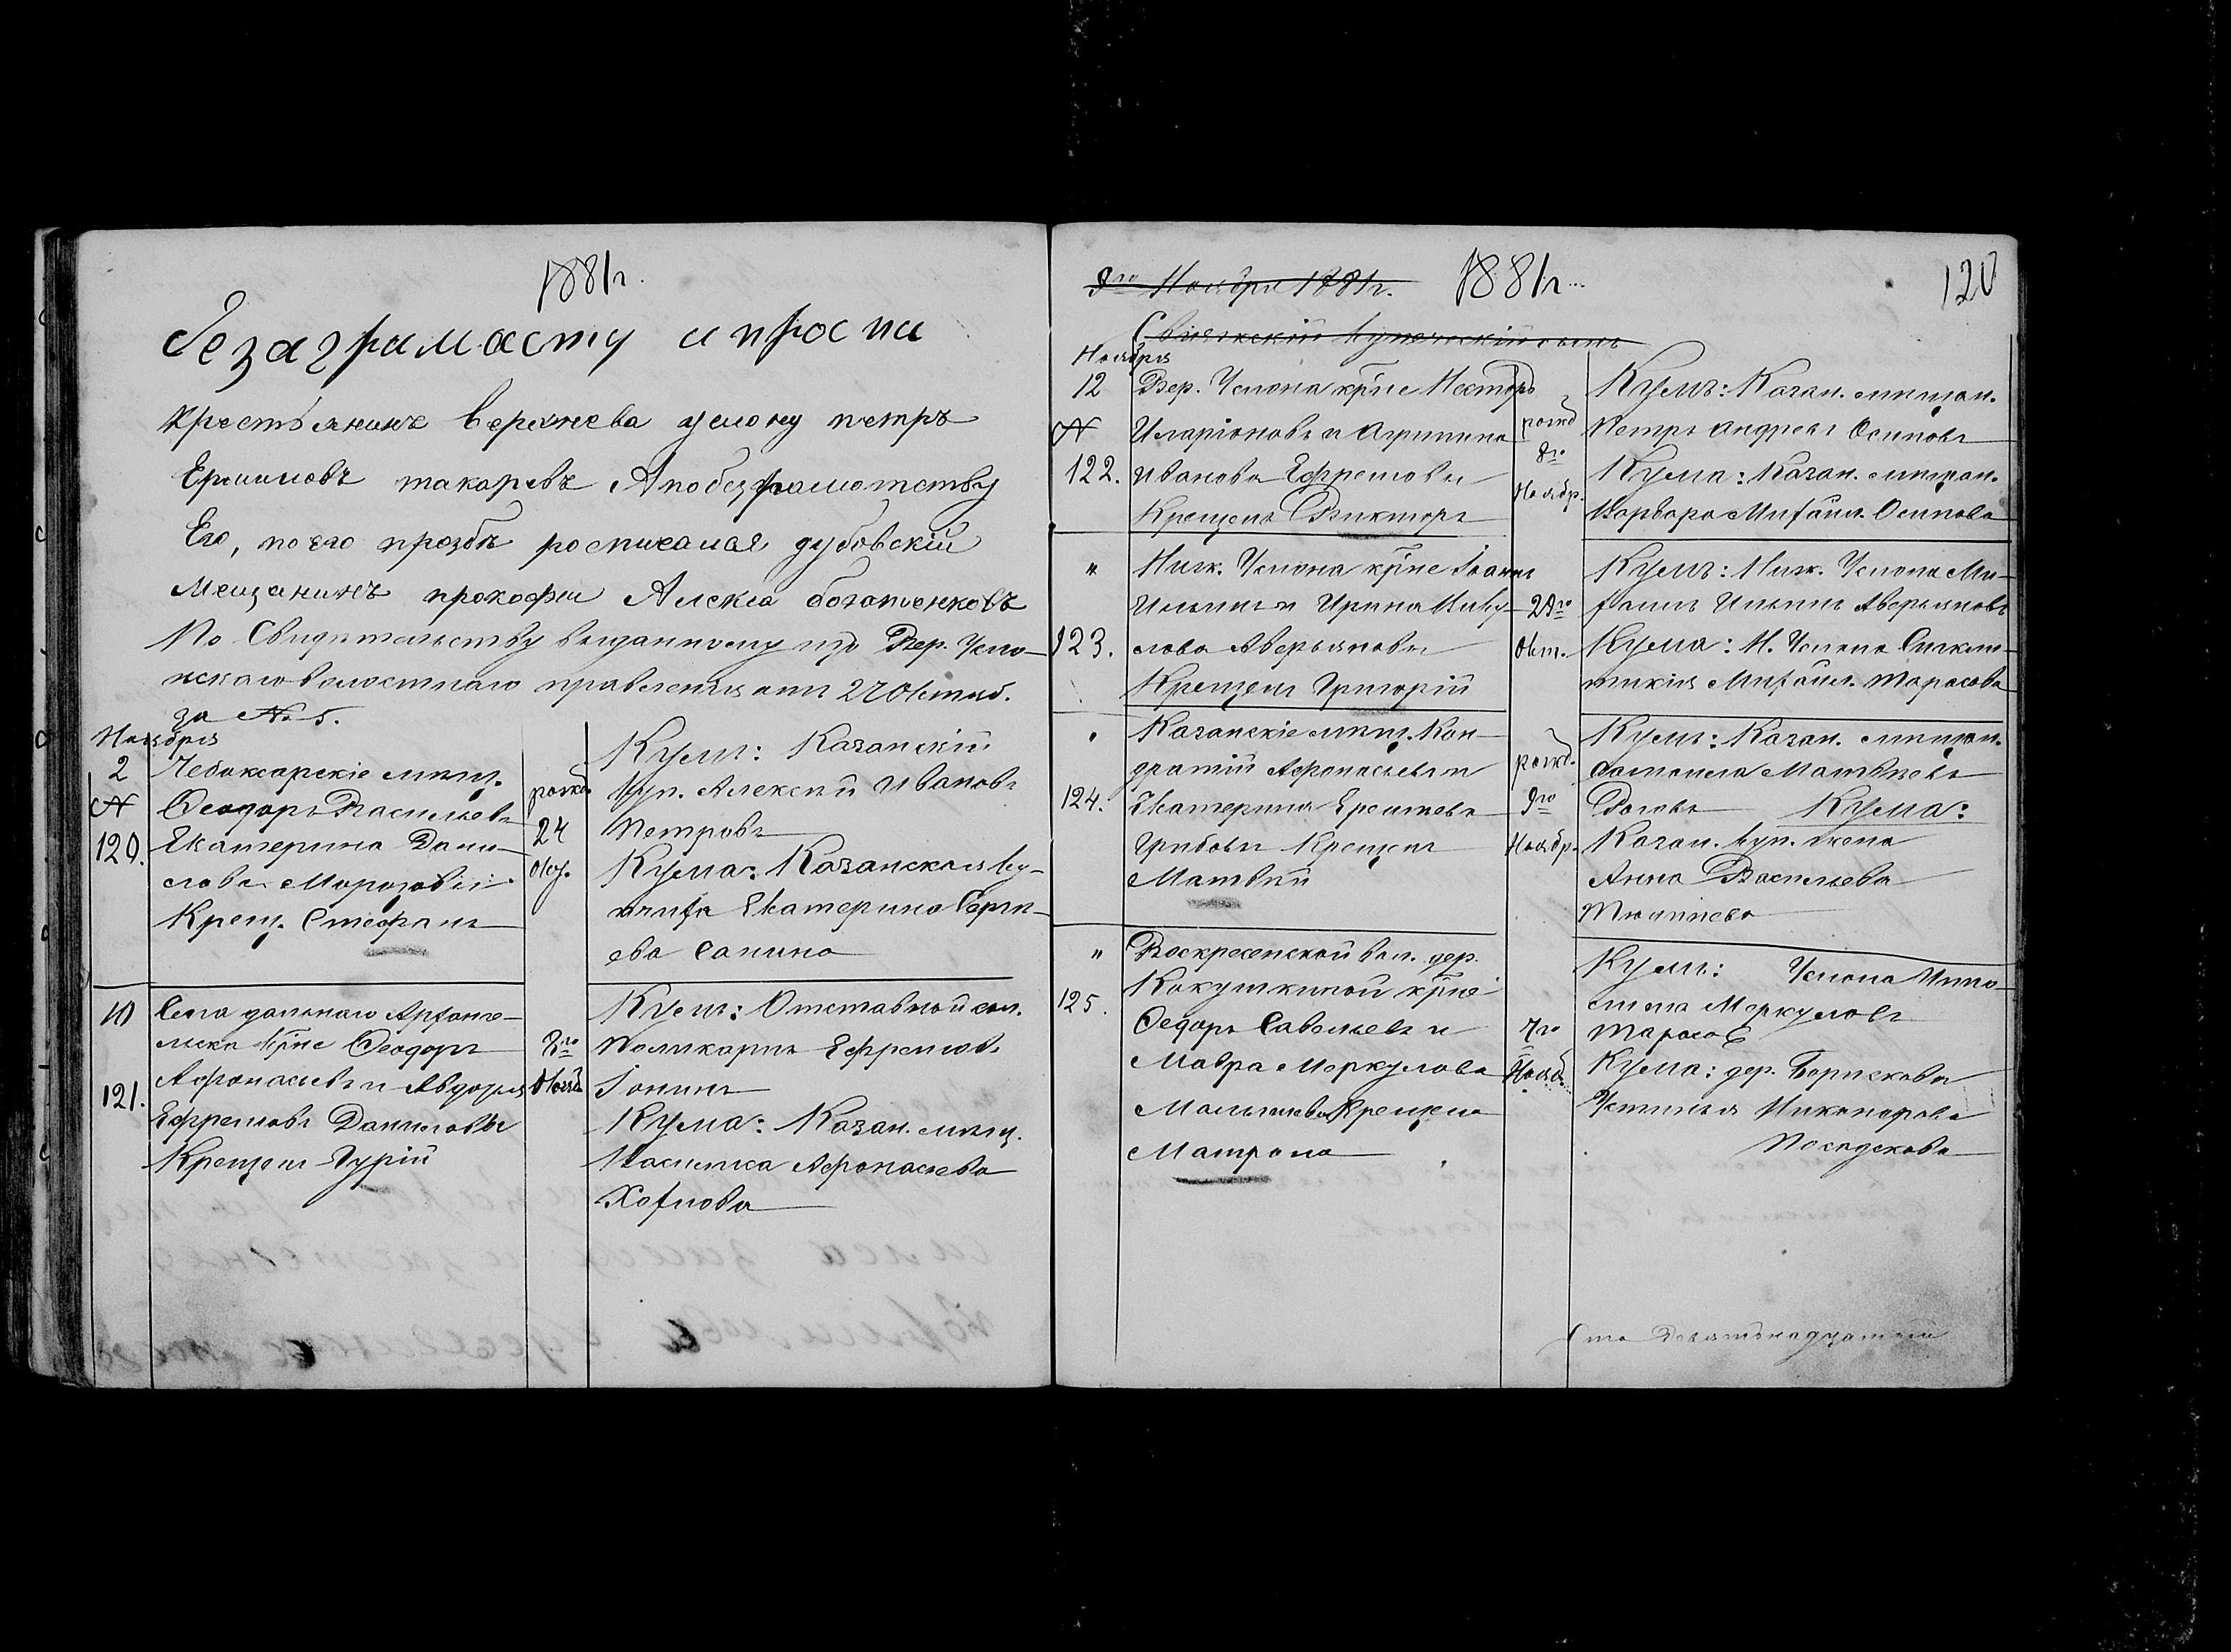 1881 г.
безаграмасту и прос ил
крестьянинъ верхнева услону петръ
макаревъ А по безграмотству
Его, по его прозбѣ росписался дубовскій
Мещанинъ прокофи Алекса богатенковъ
По Свидѣтельству выданному изъ Вер. Усло-
нскаго волостнаго правленія отъ 27 Октяб.
за № 5.
Ноября
2 Чебоксарскіе мѣщ.
№ Ѳеодоръ Васильевъ
120. Екатерина Дани-
лова Морозовы
Крещ. Стефанъ
рожд.
24
Окт.
Кумъ: Казанскій
куп. Алексѣй Ивановъ
Петровъ
Кума: Казанская ку-
пчиха Екатерина Серги-
ева Санина
10 Села дальнаго Арханге-
льска кр̃не Ѳеодоръ
Афонасьевъ и Авдотья
121. Ефремовъ Даниловы
Крещенъ Гурій
8го
Нояб.
Кумъ: Отставной сол.
Поликарпъ Ефремовъ
Іонинъ
Кума: Казан. мѣщ.
Васильса Афонасьева
Хохлова
8го Ноября 1881 г. 1881 г. 120
Свіяжскій купеческій сынъ
Ноября
12 Вер. Услона кр̃не Несторъ
№ Иларіоновъ и Агрипина
122. Иванова Ефремовы
Крещенъ Викторъ
рожд
8го
Ноябр.
Кумъ: Казан. мѣщан.
Петръ Андреевъ Осиповъ
Кума: Казан. мѣщан.
Варвара Михайл. Осипова
" Ниж. Услона кр̃не Іоаннъ
Ильинъ и Ирина Нику-
123. лова Аверьяновы
Крещенъ Григорій
29го
Окт.
Кумъ: Ниж. Услона Ми-
хаилъ Ильинъ Аверьяновъ
Кума: Н. Услона
Михайл. Тарасова
" Казанскіе мѣщ. Кон-
дратій Афонасьевъ и
124. Екатерина Еремѣева
Грибовы Крещенъ
Матвѣй
рожд.
9го
Ноябр.
Кумъ: Казан. мѣщан.
Матвѣевъ
Кума:
Казан. куп. жена
Анна Васильева
" Воскресенской вол. дер.
Кокушкиной кр̃не
125. Ѳедоръ Савельевъ и
Мавра Меркулова
Малышевы Крещена
Матрона
7го
Нояб.
Кумъ: Услона Иппо-
лита Меркуловъ
Тарасов
Кума: дер. Борисковы
Устинья Никонорова
Посадскова
Сто Девятнадцатый